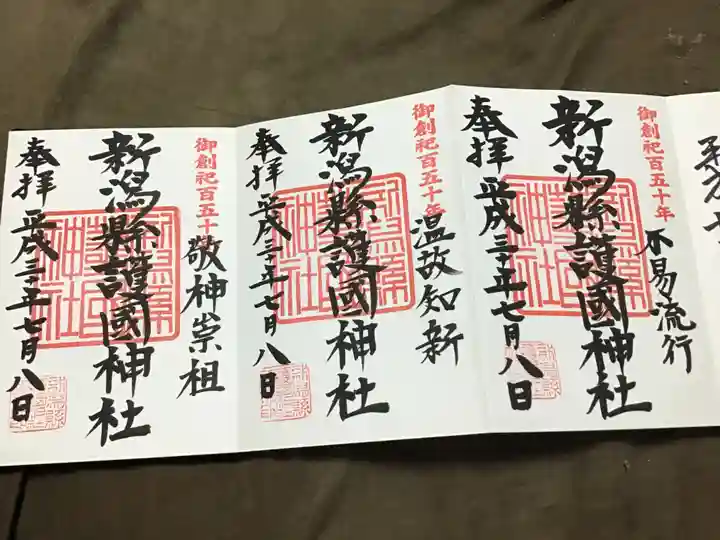 御創祀百五十年
不易流行
新潟縣護國神社
奉拝 平成三十年七月八日
御創祀百五十年
温故知新
新潟縣護國神社
奉拝 平成三十年七月八日
御創祀百五十
敬神崇祖
新潟縣護國神社
奉拝 平成三十年七月八日